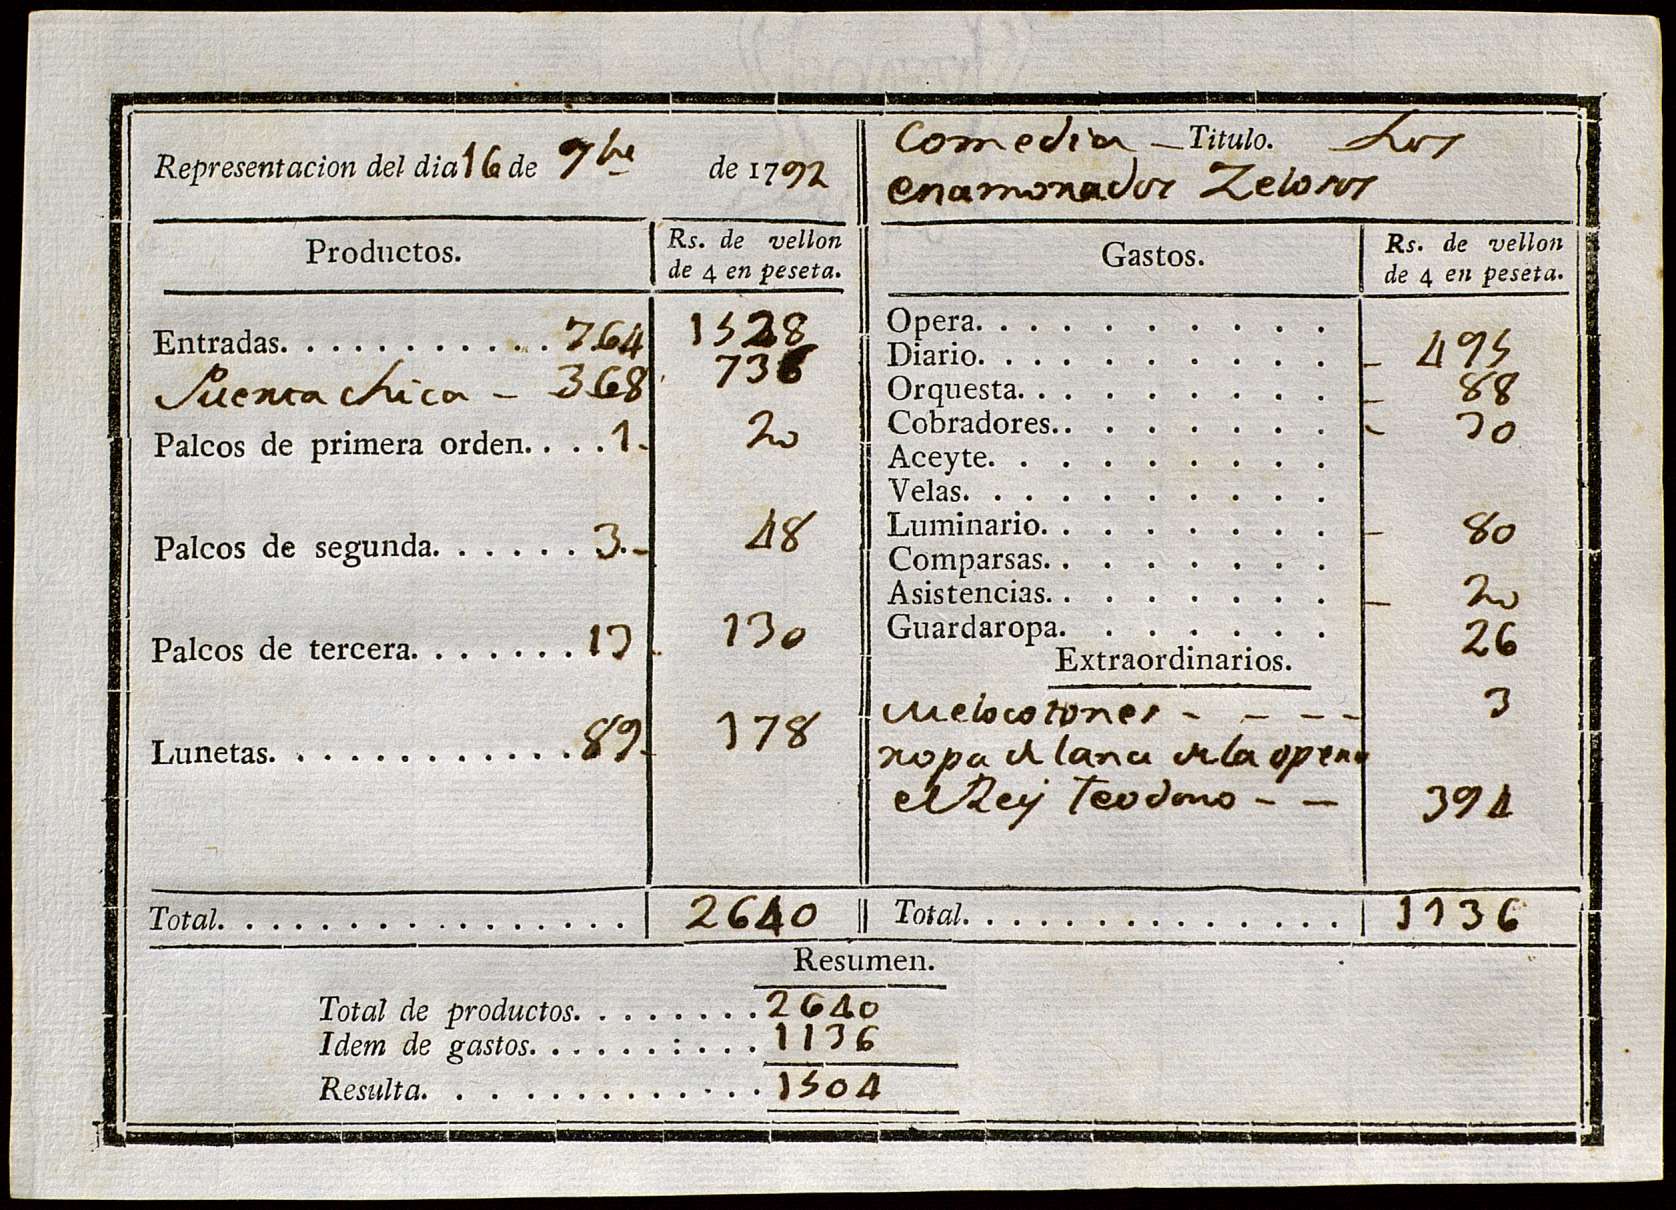 Representacion del dia 16 de 7bre de 1792
Comedia — Titulo. Los
enamorados Zelosos
Productos.
Rs. de vellon
de 4 en peseta.
Entradas. . . . . . . . . . . 764 1528
Puerta chica — 368 736
Palcos de primera orden. . . . 1 20
Palcos de segunda. . . . . . . 3 48
Palcos de tercera. . . . . . . 13 130
Lunetas. . . . . . . . . . . . 89 178
Total. . . . . . . . . . . . . . . . 2640
Gastos.
Rs. de vellon
de 4 en peseta.
Opera. . . . . . . . . .
Diario. . . . . . . . . . 495
Orquesta. . . . . . . . . 88
Cobradores. . . . . . . . 30
Aceyte. . . . . . . . . .
Velas. . . . . . . . . .
Luminario. . . . . . . . 80
Comparsas. . . . . . . .
Asistencias. . . . . . . . 20
Guardaropa. . . . . . . . 26
Extraordinarios.
Melocotones - - - - 3
ropa de lana de la opera
el Rey Teodoro - - 394
Total. . . . . . . . . . . . . . . 1136
Resumen.
Total de productos. . . . . . . . 2640
Idem de gastos. . . . . . : . . . 1136
Resulta. . . . . . . . . . . . . 1504